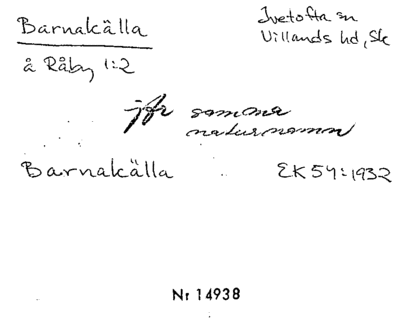 Barnakälla
Ivetofta sn
Villands hd, Sk
å Råby 1:2
jfr samma
naturnamn
Barnakälla
EK 54:1932
Nr 14938